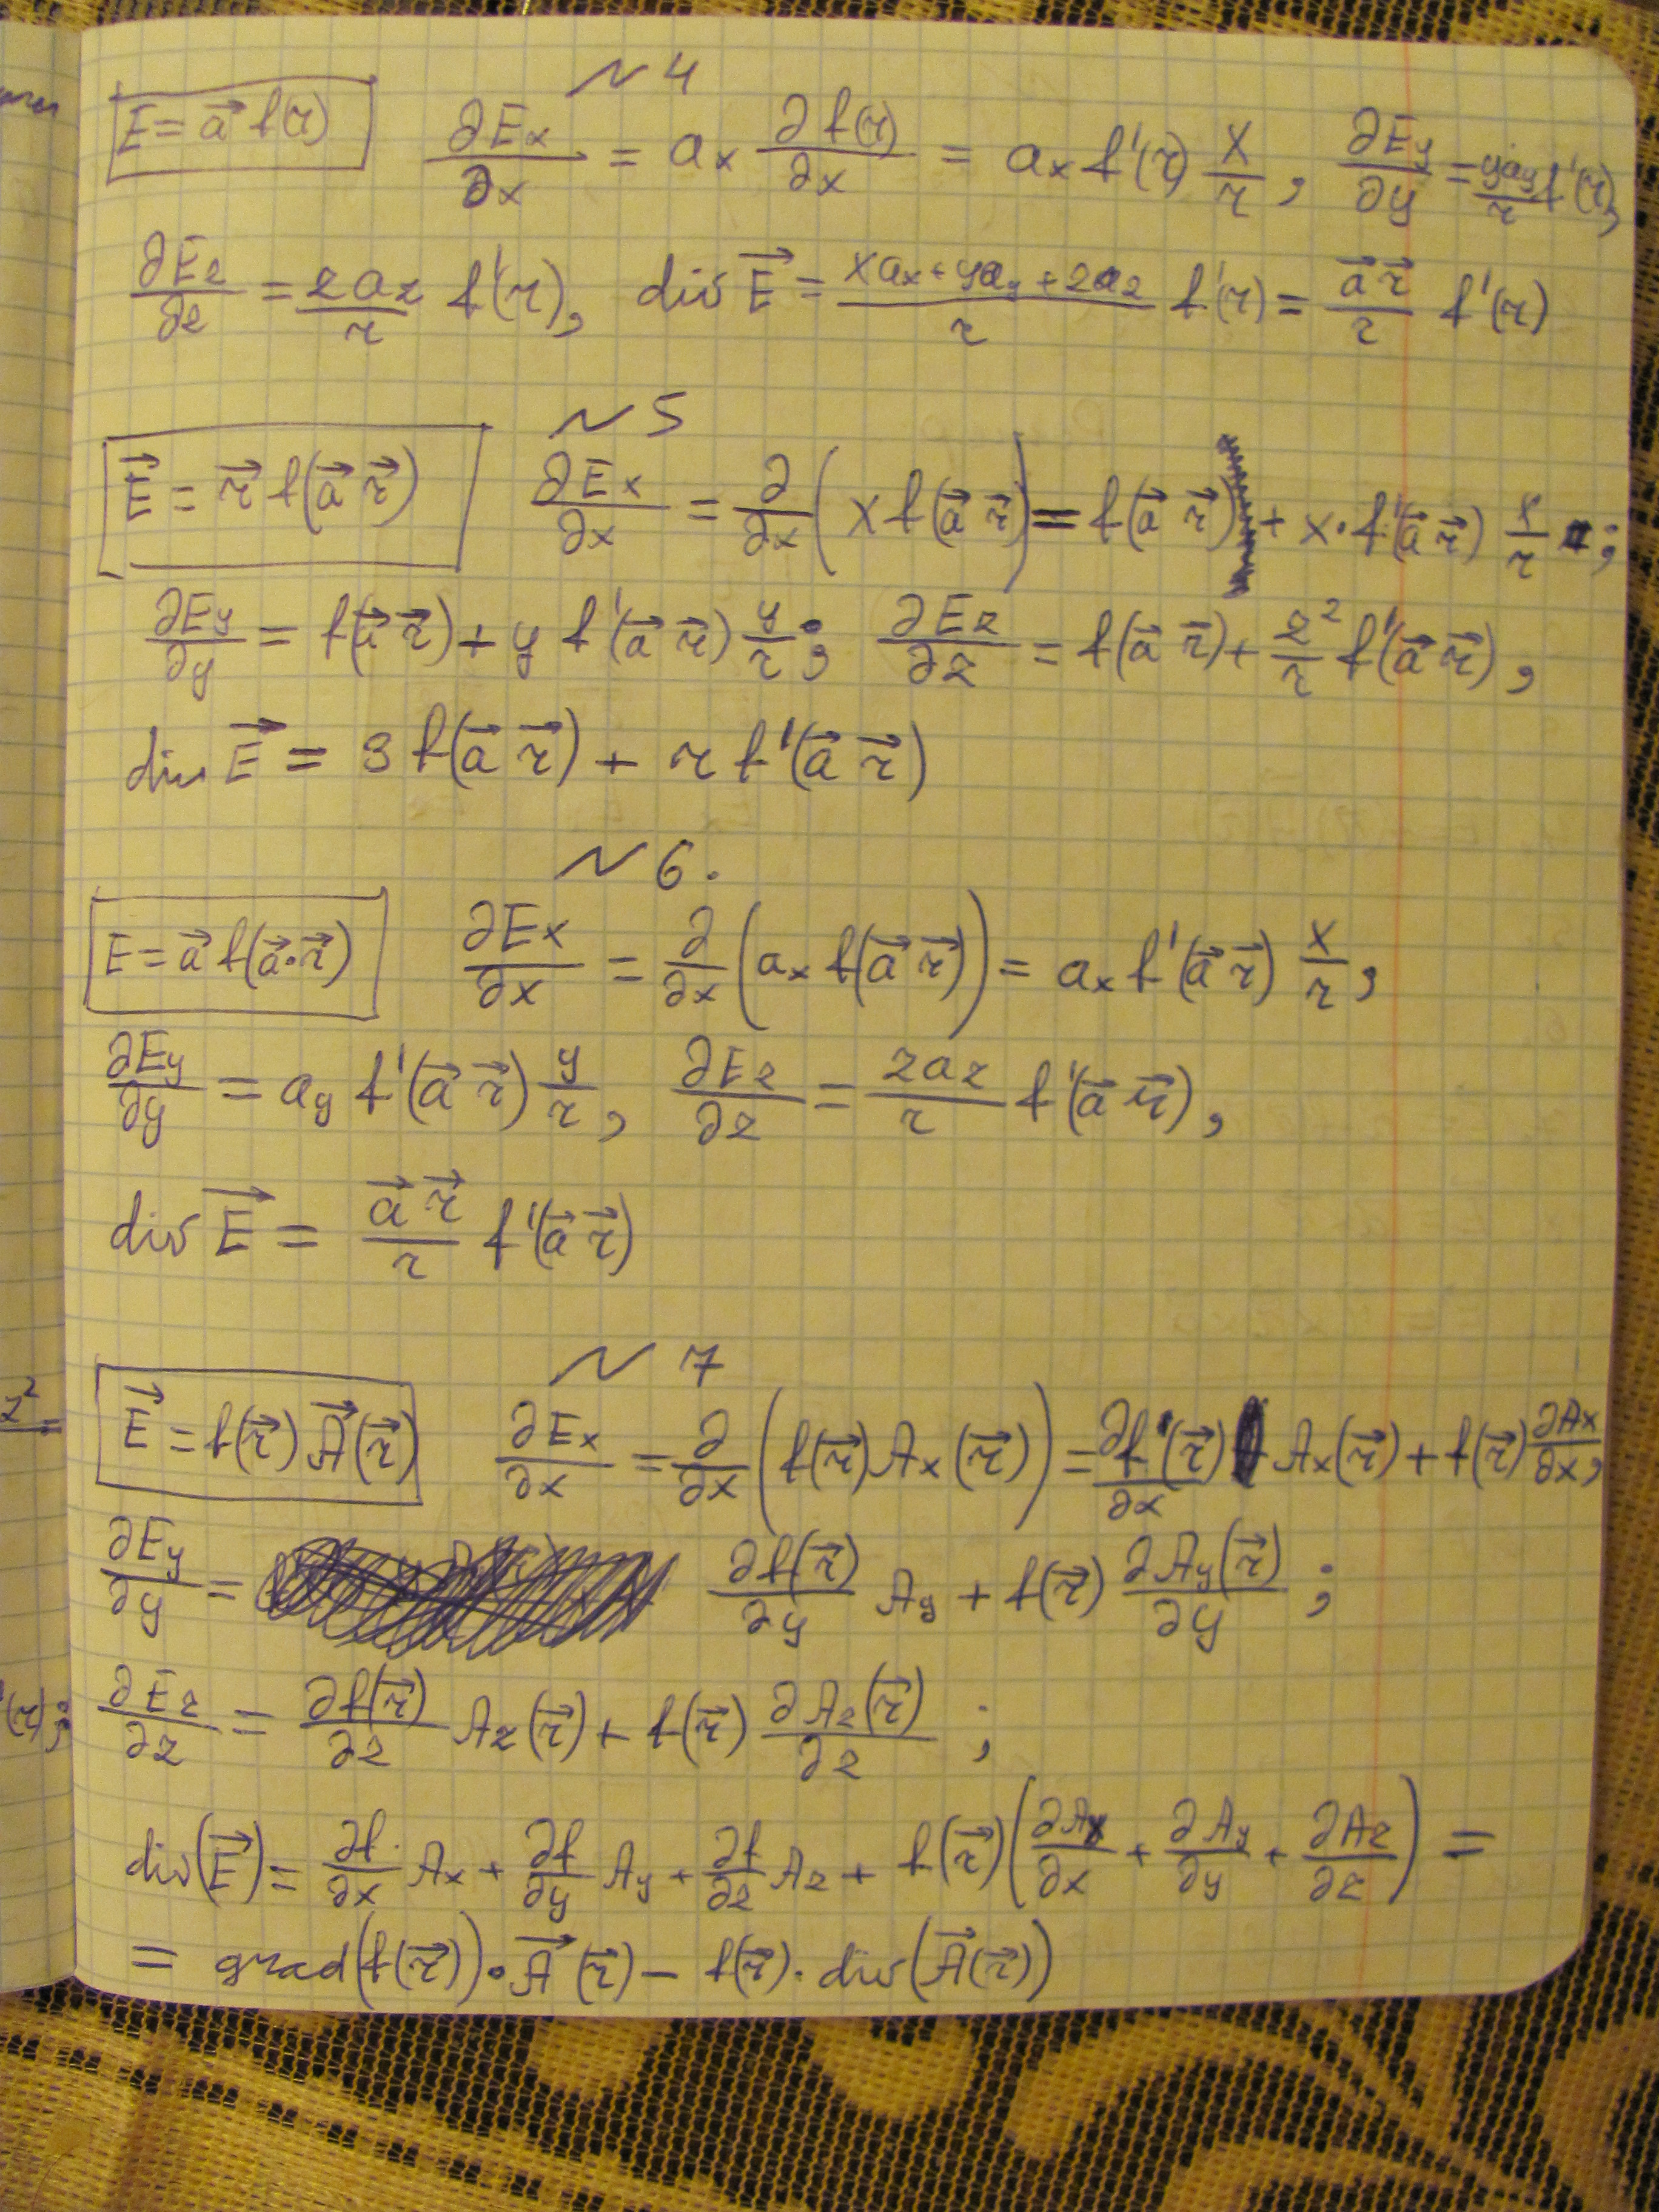 №4
E = a⃗ f(r)   ∂Ex/∂x = ax ∂f(r)/∂x = ax f'(r) x/r, ∂Ey/∂y = yay/r f'(r),
∂Ez/∂z = zaz/r f'(r), div E⃗ = (xax + yay + zaz)/r f'(r) = a⃗ r⃗/r f'(r)
№5
E⃗ = r⃗ f(a⃗ r⃗)   ∂Ex/∂x = ∂/∂x (x f(a⃗ r⃗)) = f(a⃗ r⃗) + x · f'(a⃗ r⃗) x/r ;
∂Ey/∂y = f(a⃗ r⃗) + y f'(a⃗ r⃗) y/r ; ∂Ez/∂z = f(a⃗ r⃗) + z²/r f'(a⃗ r⃗),
div E⃗ = 3 f(a⃗ r⃗) + r f'(a⃗ r⃗)
№6.
E = a⃗ f(a⃗·r⃗)   ∂Ex/∂x = ∂/∂x (ax f(a⃗ r⃗)) = ax f'(a⃗ r⃗) x/r,
∂Ey/∂y = ay f'(a⃗ r⃗) y/r, ∂Ez/∂z = zaz/r f'(a⃗ r⃗),
div E⃗ = a⃗ r⃗/r f'(a⃗ r⃗)
№7
E⃗ = f(r⃗) A⃗(r⃗)   ∂Ex/∂x = ∂/∂x (f(r⃗) Ax(r⃗)) = ∂f(r⃗)/∂x Ax(r⃗) + f(r⃗) ∂Ax/∂x,
∂Ey/∂y = ∂f(r⃗)/∂y Ay + f(r⃗) ∂Ay(r⃗)/∂y ;
∂Ez/∂z = ∂f(r⃗)/∂z Az(r⃗) + f(r⃗) ∂Az(r⃗)/∂z ;
div(E⃗) = ∂f/∂x Ax + ∂f/∂y Ay + ∂f/∂z Az + f(r⃗)(∂Ax/∂x + ∂Ay/∂y + ∂Az/∂z) =
= grad(f(r⃗))·A⃗(r⃗) − f(r⃗)·div(A⃗(r⃗))